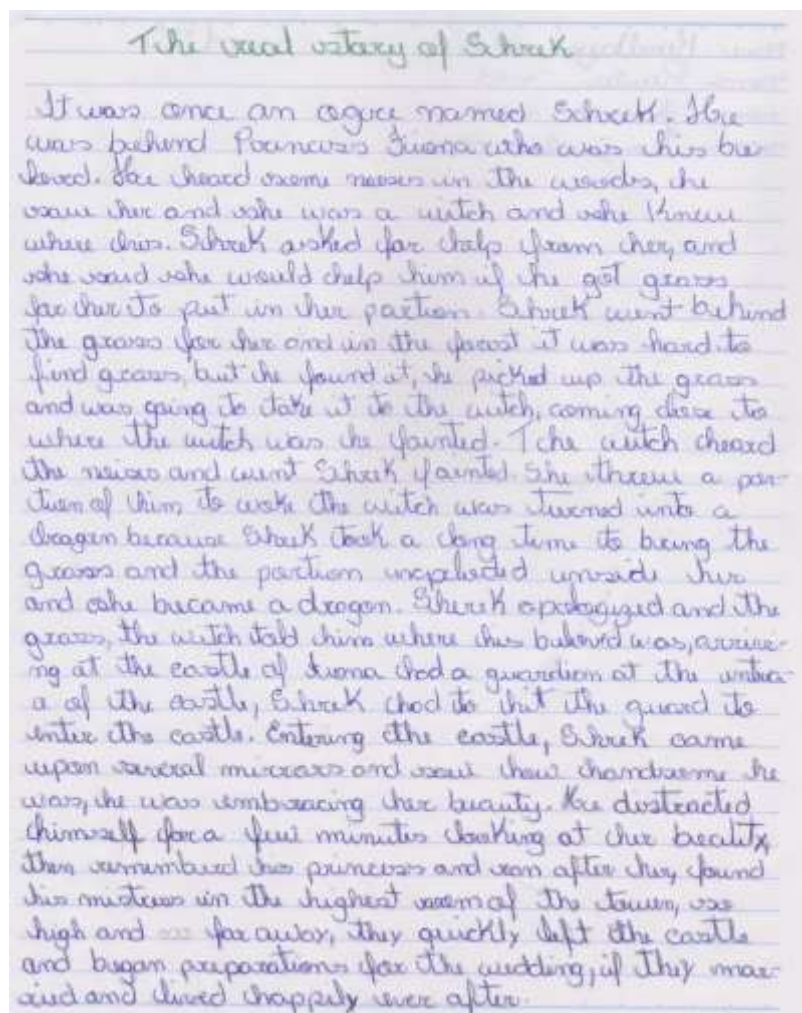 The real story of Schrek
It was once an ogre named Schrek. He
was behind Princess Fiona who was his be-
loved. He heard some noises in the woods, he
saw her and she was a witch and she knew
where his. Schrek asked for help from her, and
she said she would help him if he got grass
for her to put in her portion. Shrek went behind
the grass for her and in the forest it was hard to
find grass, but he found it, he picked up the grass
and was going to take it to the witch, coming close to
where the witch was he fainted. The witch heard
the noises and went Shrek fainted. She threw a por-
tion of him to woke the witch was turned into a
dragon because Shrek took a long time to bring the
grass and the portion imploded inside her
and she became a dragon. Shrek apologized and the
grass, the witch told him where his beloved was, arrivi-
ng at the castle of Fiona had a guardian at the
a of the castle, Shrek had to hit the guard to
enter the castle. Entering the castle, Shrek came
upon several mirrors and saw how handsome he
was, he was embracing her beauty. He distracted
himself for a few minutes looking at her beality,
then remembered his princess and ran after her, found
his mistress in the highest room of the tower, so
high and far away, they quickly left the castle
and began preparations for the wedding, if they mar-
ried and lived happily ever after.